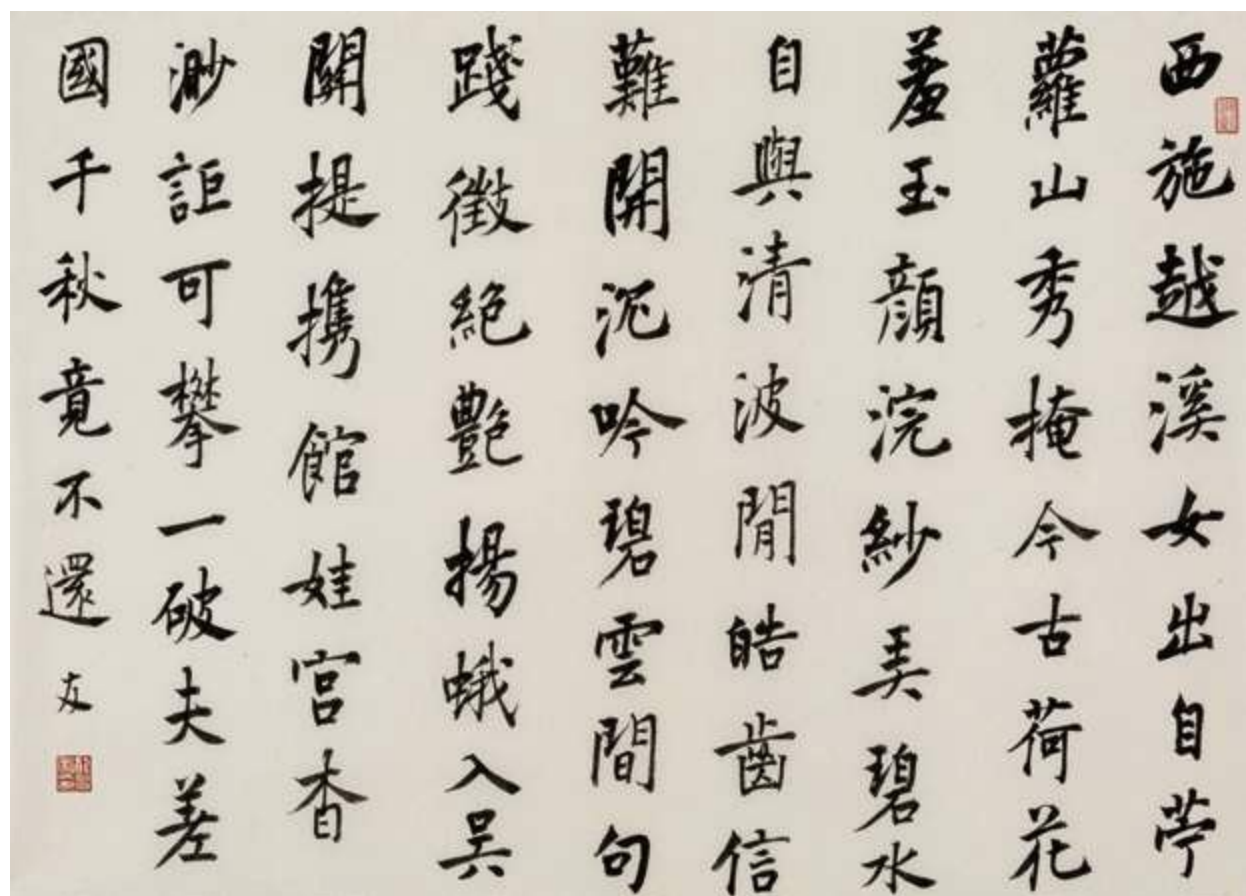 西施越溪女出自苧
蘿山秀掩今古荷花
羞玉顔浣紗美碧水
自與清波閒皓齒信
難開沉吟碧雲間句
踐徵絕艷揚蛾入吳
關提攜館娃宮杳
渺詎可攀一破夫差
國千秋竟不還 友